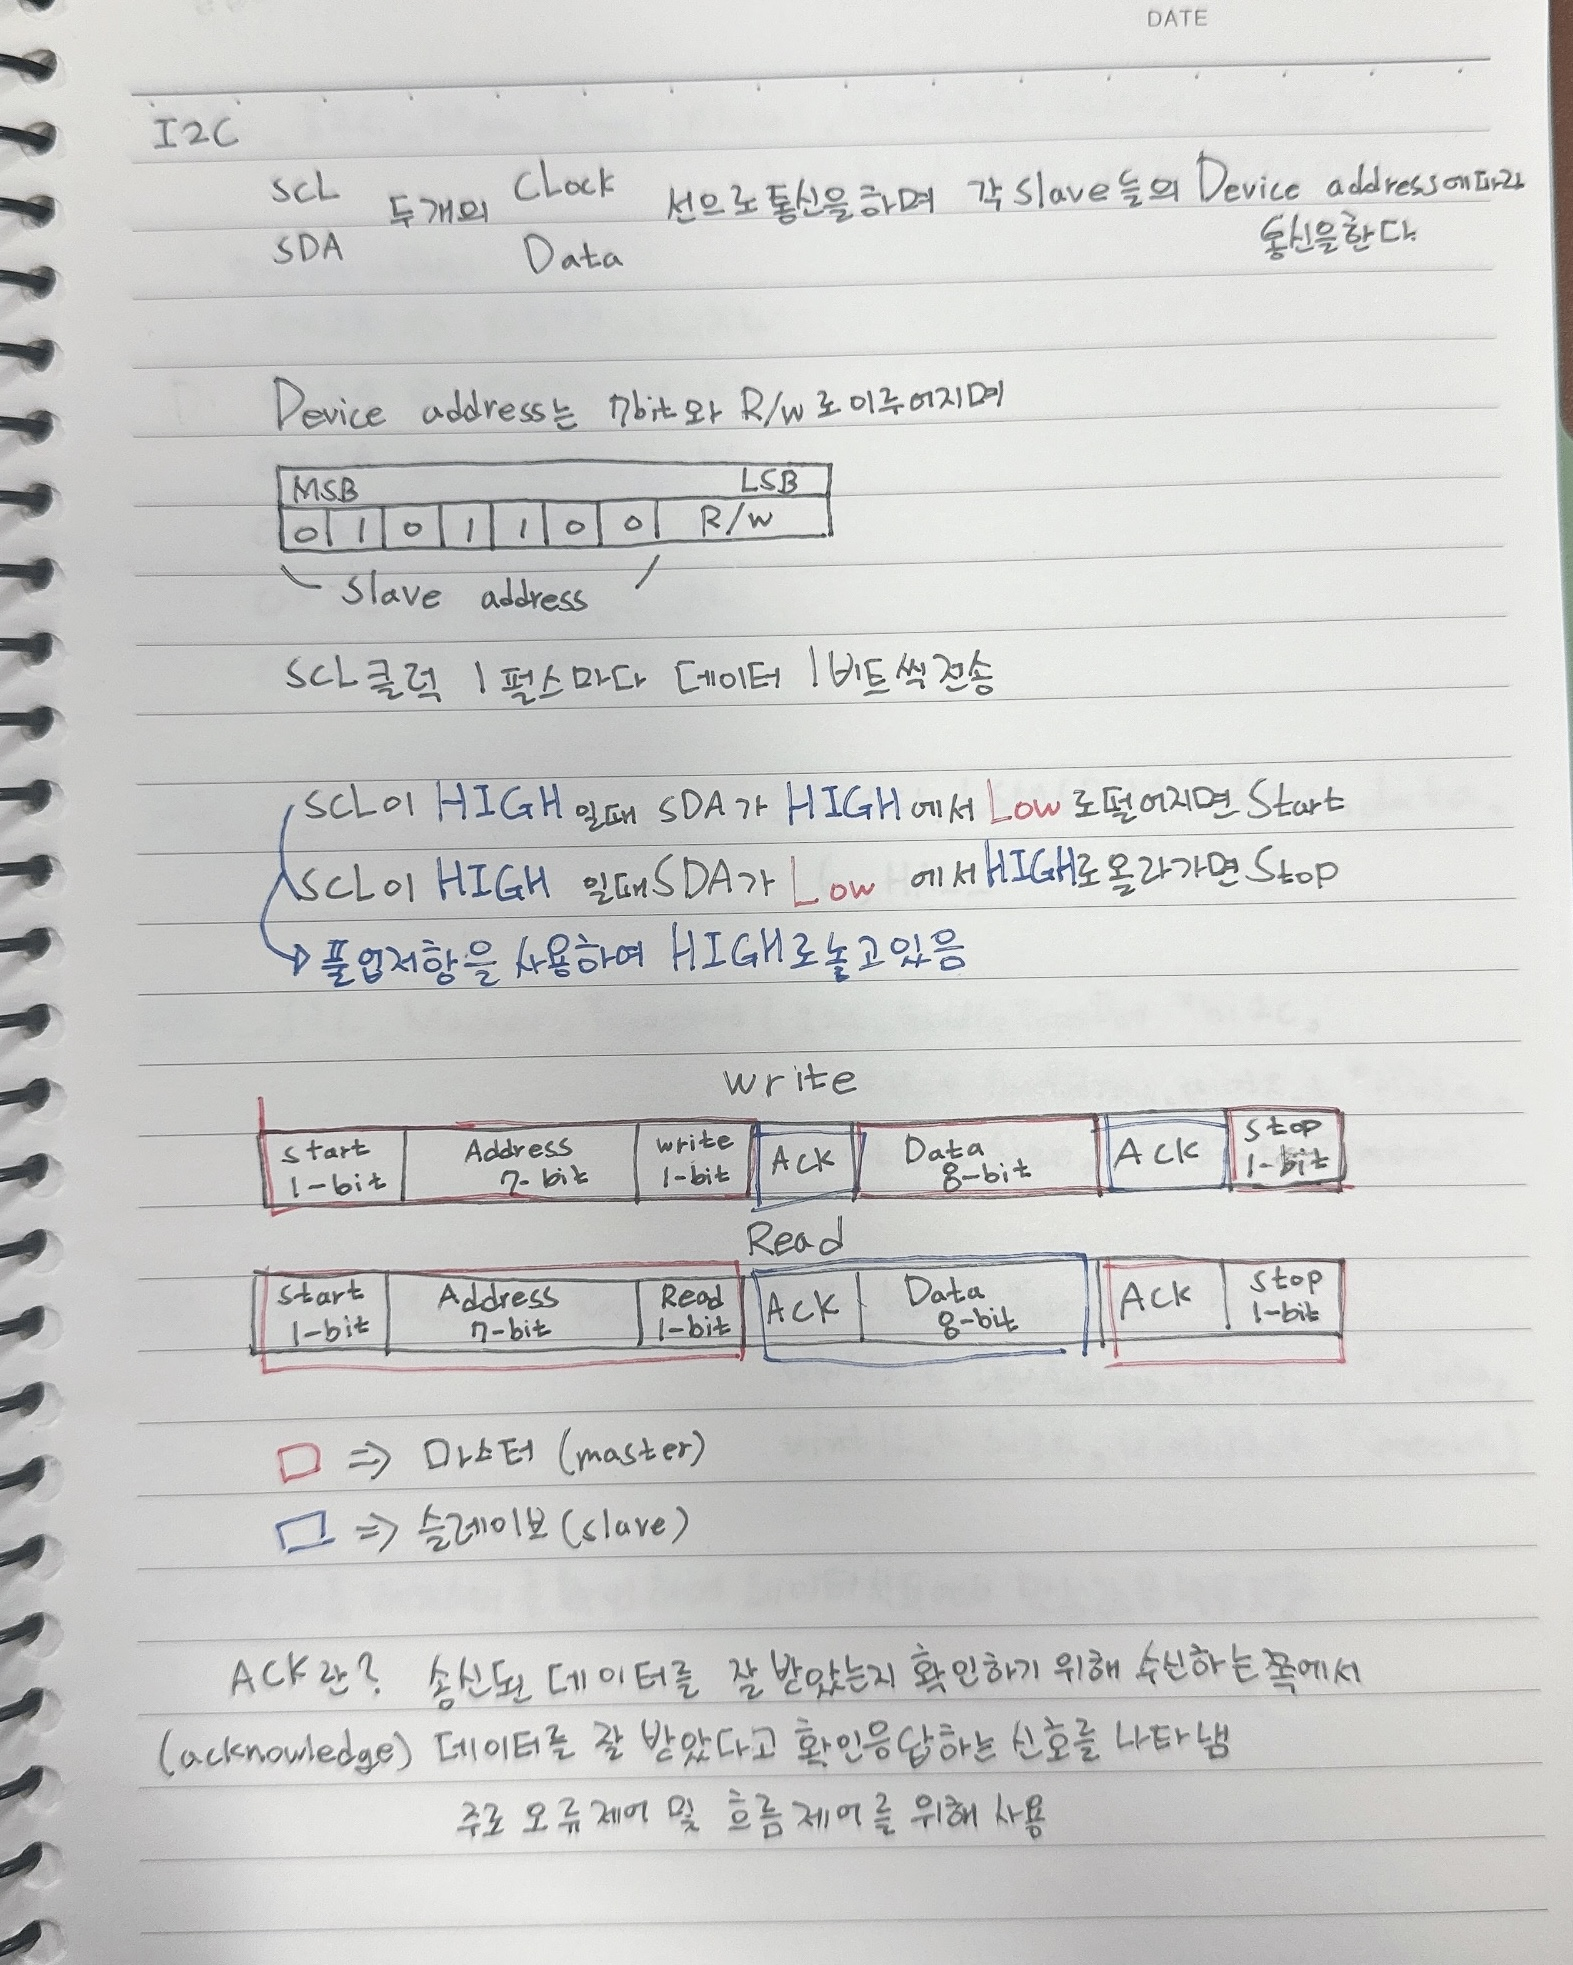 DATE
I2C
SCL 두개의 Clock 선으로 통신을 하며 각 slave들의 Device address에따라
SDA Data 통신을한다.
Device address는 7bit와 R/W로이루어지며
MSB LSB
0 1 0 1 1 0 0 R/W
slave address
SCL클럭 1펄스마다 데이터 1비트씩전송
SCL이 HIGH 일때 SDA가 HIGH에서 Low로떨어지면 Start
SCL이 HIGH 일때 SDA가 Low에서 HIGH로올라가면 Stop
풀업저항을 사용하여 HIGH로놓고있음
write
start Address write ACK Data ACK stop
1-bit 7-bit 1-bit 8-bit 1-bit
Read
start Address Read ACK Data ACK stop
1-bit 7-bit 1-bit 8-bit 1-bit
⇒ 마스터 (master)
⇒ 슬레이브 (slave)
ACK란? 송신된 데이터를 잘 받았는지 확인하기 위해 수신하는쪽에서
(acknowledge) 데이터를 잘 받았다고 확인응답하는 신호를 나타냄
주로 오류제어 및 흐름제어를 위해 사용